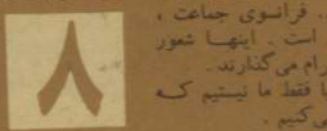 . فرانسوی جماعت ،
است . اینهـا شعور
رام می‌گذارند .
ا فقط ما نیستیم کـه
ی‌کنیم .
۸